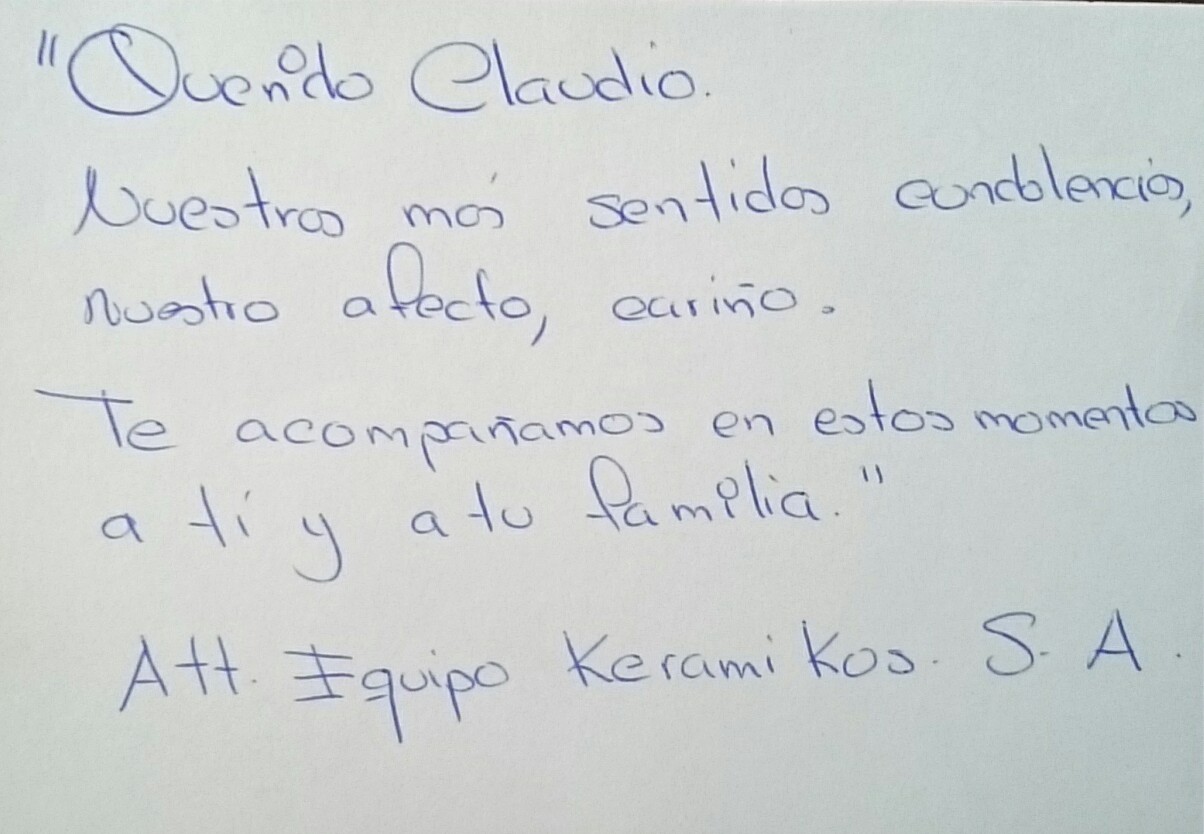 "Querido Claudio.
Nuestras más sentidas condolencias,
nuestro afecto, cariño.
Te acompañamos en estos momentos
a tí y a tu familia."
Att. Equipo Keramikos. S. A.